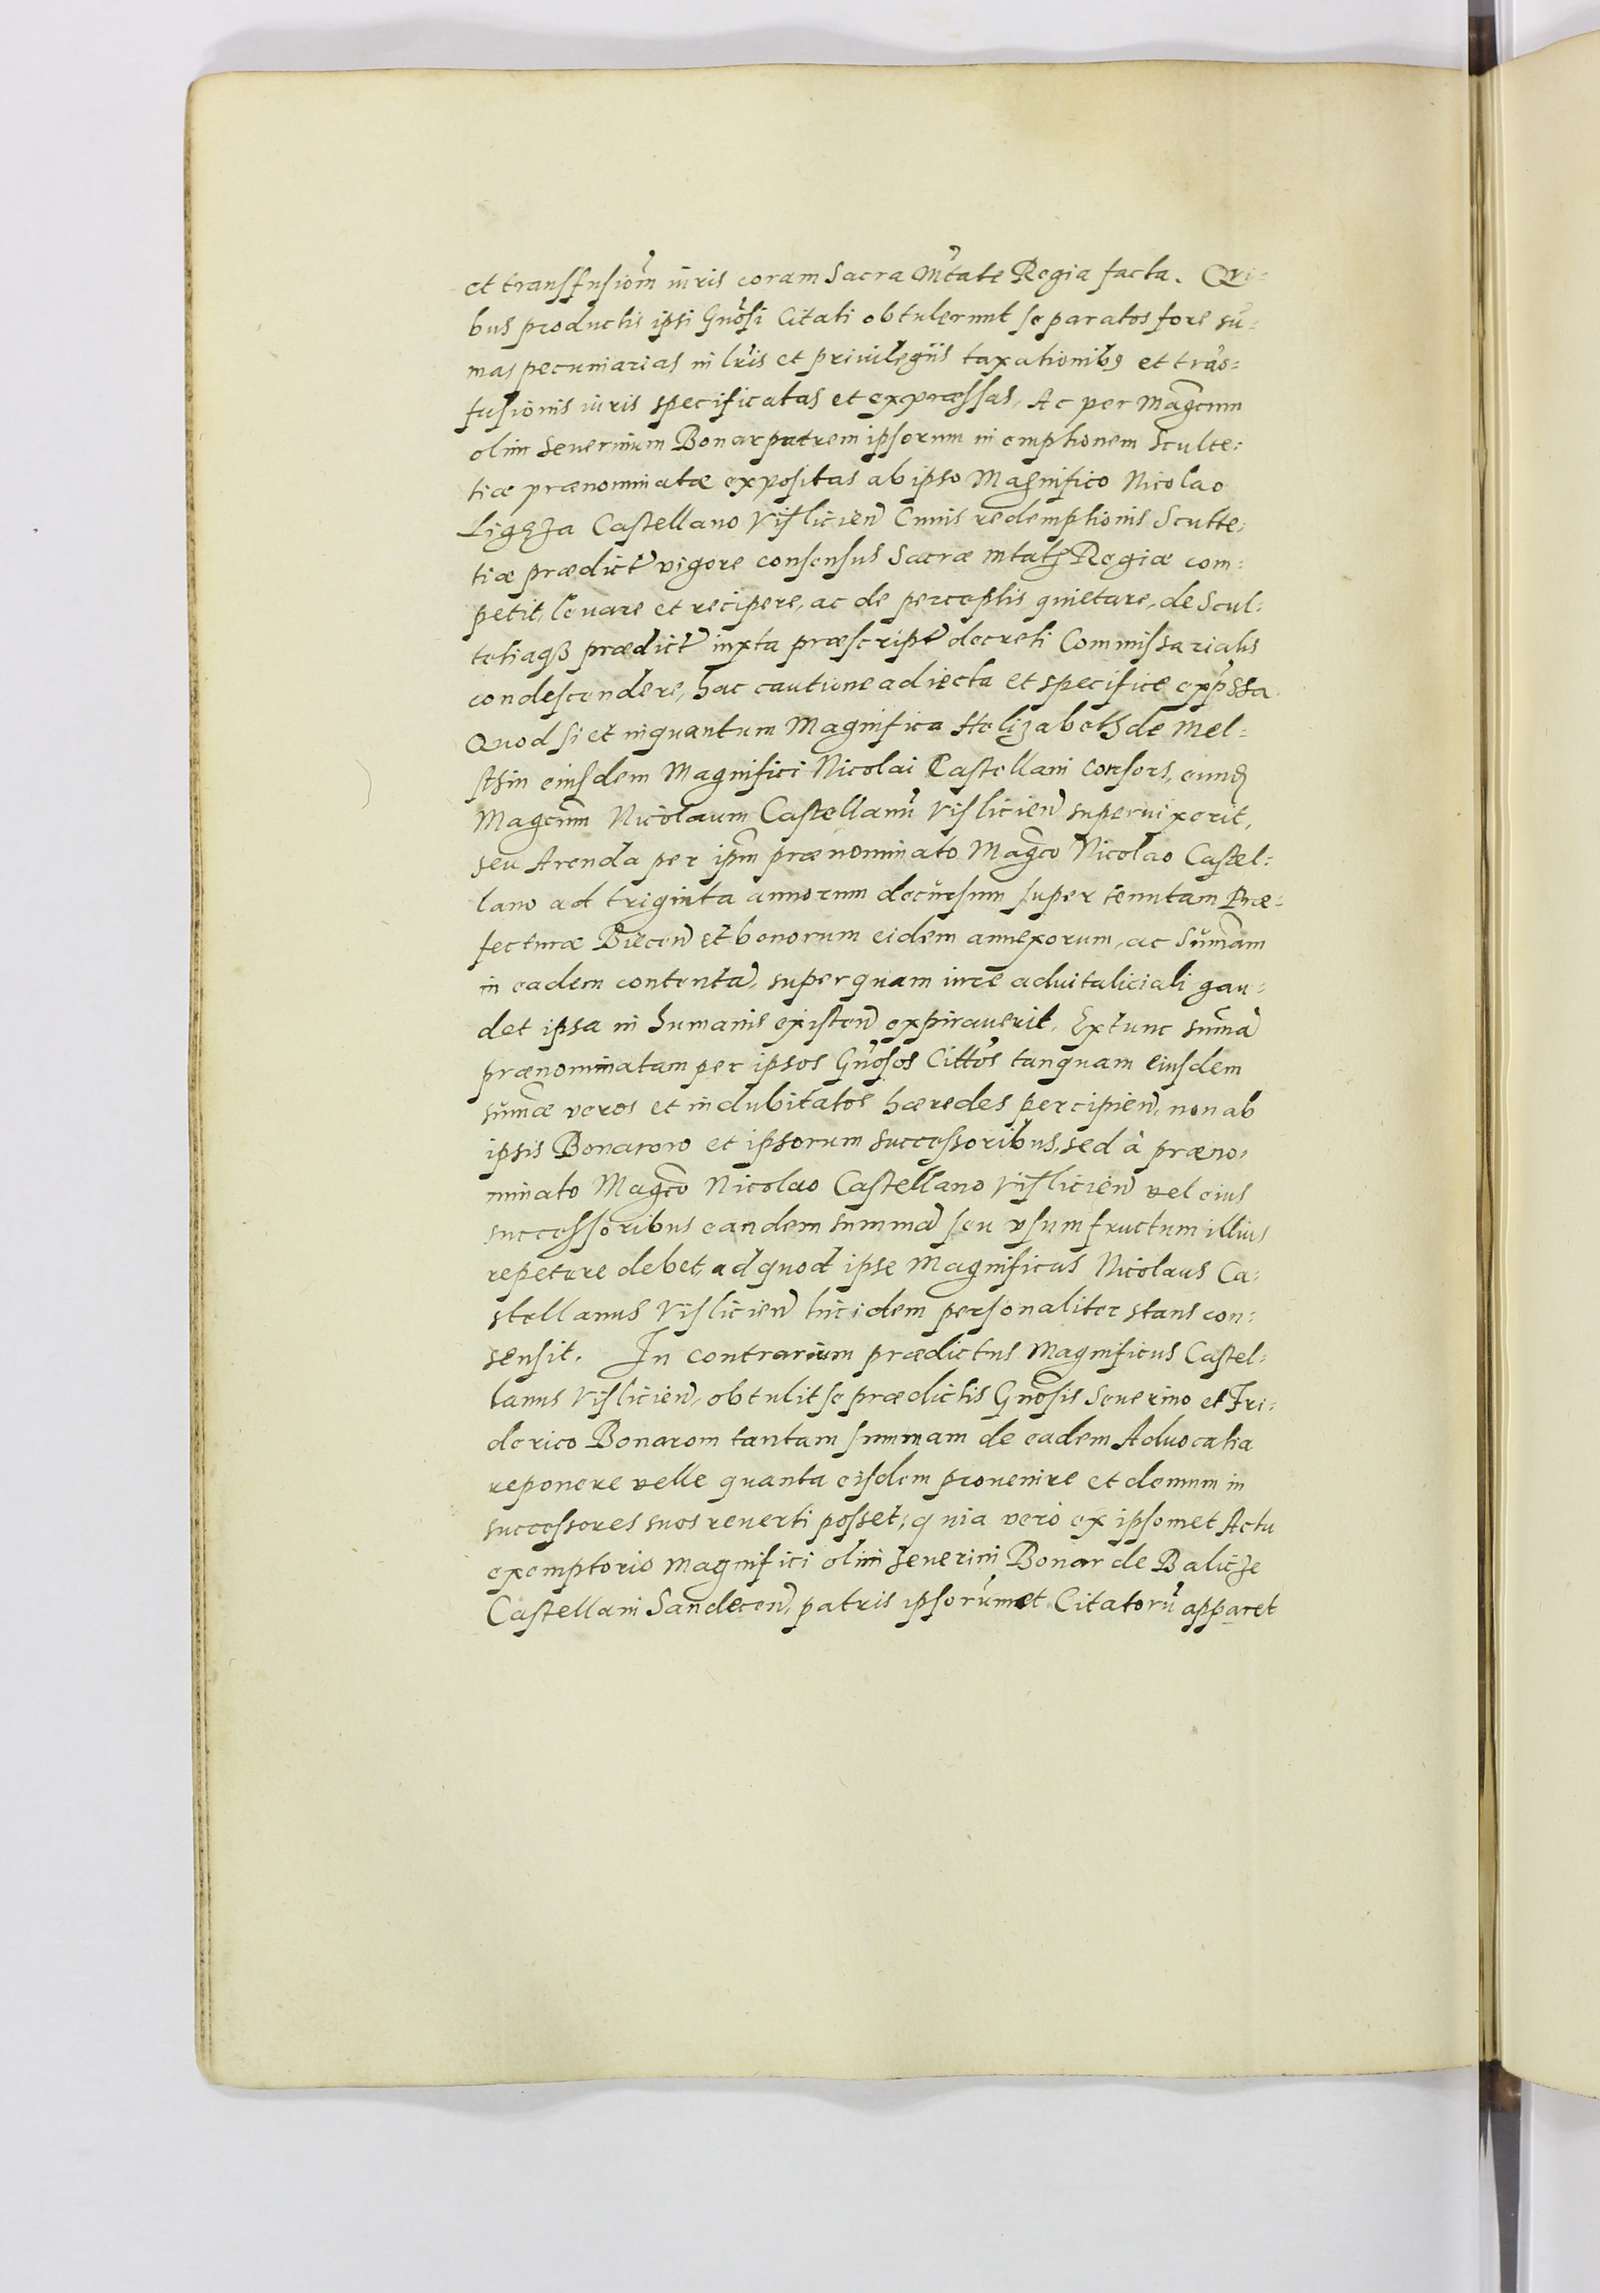 et transfusiom̃ iuris coram Sacra Mt̃ate Regia facta. Qui-
bus productis ipsi Gñosi Citati obtulerunt se paratos fore sũ-
mas pecuniarias in lr̃is et priuilegiis taxationibꝰ et trãs-
fusionis iuris specificatas et expressas. Ac per Mag̃cum
olim Seuerinum Bonar patrem ipsorum in emptionem Sculte-
tiæ prænominatæ expositas ab ipso Magnifico Nicolao
Ligęza Castellano Vislicieñ Cuius redemptionis Sculte-
tiæ prædict̃ vigore consensus Sacræ Mtatis Regiæ com-
petit, leuare et recipere, ac de perceptis quietare, de Scul-
tetiaqꝫ prædict̃ iuxta præscript̃ decreti Commissarialis
condescendere, hac cautione adiecta et specifice exp̃ssa
Quod si et inquantum Magnifica Helizabeth de Mel-
sthin eiusdem Magnifici Nicolai Castellani consors, eund̃
Magcum̃ Nicolaum Castellanũ Visliciеñ superuixerit,
seu Arenda per ipm̃ prænominato Mag̃co Nicolao Castel-
lano ad triginta annorum decursum super tenutam Præ-
fecturæ Bieceñ et bonorum eidem annexorum, ac Sum̃am
in eadem contentã, super quam iure aduitaliciali gau-
det ipsa in humanis existeñ expirauerit. Extunc sum̃ã
prænominatam per ipsos Gñosos Citt̃os tanquam eiusdem
sum̃æ veros et indubitatos hæredes percipieñ, non ab
ipsis Bonarow et ipsorum successoribus, sed à præno-
minato Mag̃co Nicolao Castellano Visliciеñ vel eius
successoribus eandem summã seu vsumfructum illius
repetere debet, ad quod ipse Magnificus Nicolaus Ca-
stellanus Visliciеñ inibidem personaliter stans con-
sensit. In contrarium prædictus Magnificus Castel-
lanus Visliciеñ, obtulit se prædictis Gñosis Seuerino et Fri-
derico Bonarom tantam summam de eadem Aduocatia
reponere velle quanta eisdem prouenire et demum in
successores suos reuerti posset, quia verò ex ipsomet Actu
exemptorio Magnifici olim Seuerini Bonar de Balicze
Castellani Sandeceñ, patris ipsorũmet Citatorũ apparet